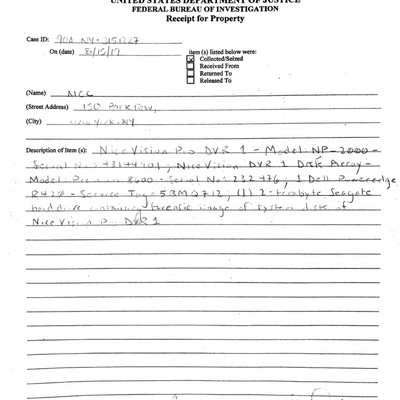 UNITED STATES DEPARTMENT OF JUSTICE
FEDERAL BUREAU OF INVESTIGATION
Receipt for Property
Case ID: 90A-NY-3151227
On (date) 8/15/19
item(s) listed below were:
Collected/Seized
Received From
Returned To
Released To
(Name) MCC
(Street Address) 150 Park Row,
(City) New York, NY
Description of Item(s): NiceVision Pro DVR 1 - Model: NP-2000-
Serial No: ; NiceVision DVR 1 Disk Array-
Model: 8600 - Serial No: 232476; 1 Dell Poweredge
R420 - Service Tag: 5BMQ712, (1) 2-terabyte Seagate
hard drive containing forensic image of system disk of
NiceVision Pro DVR 1